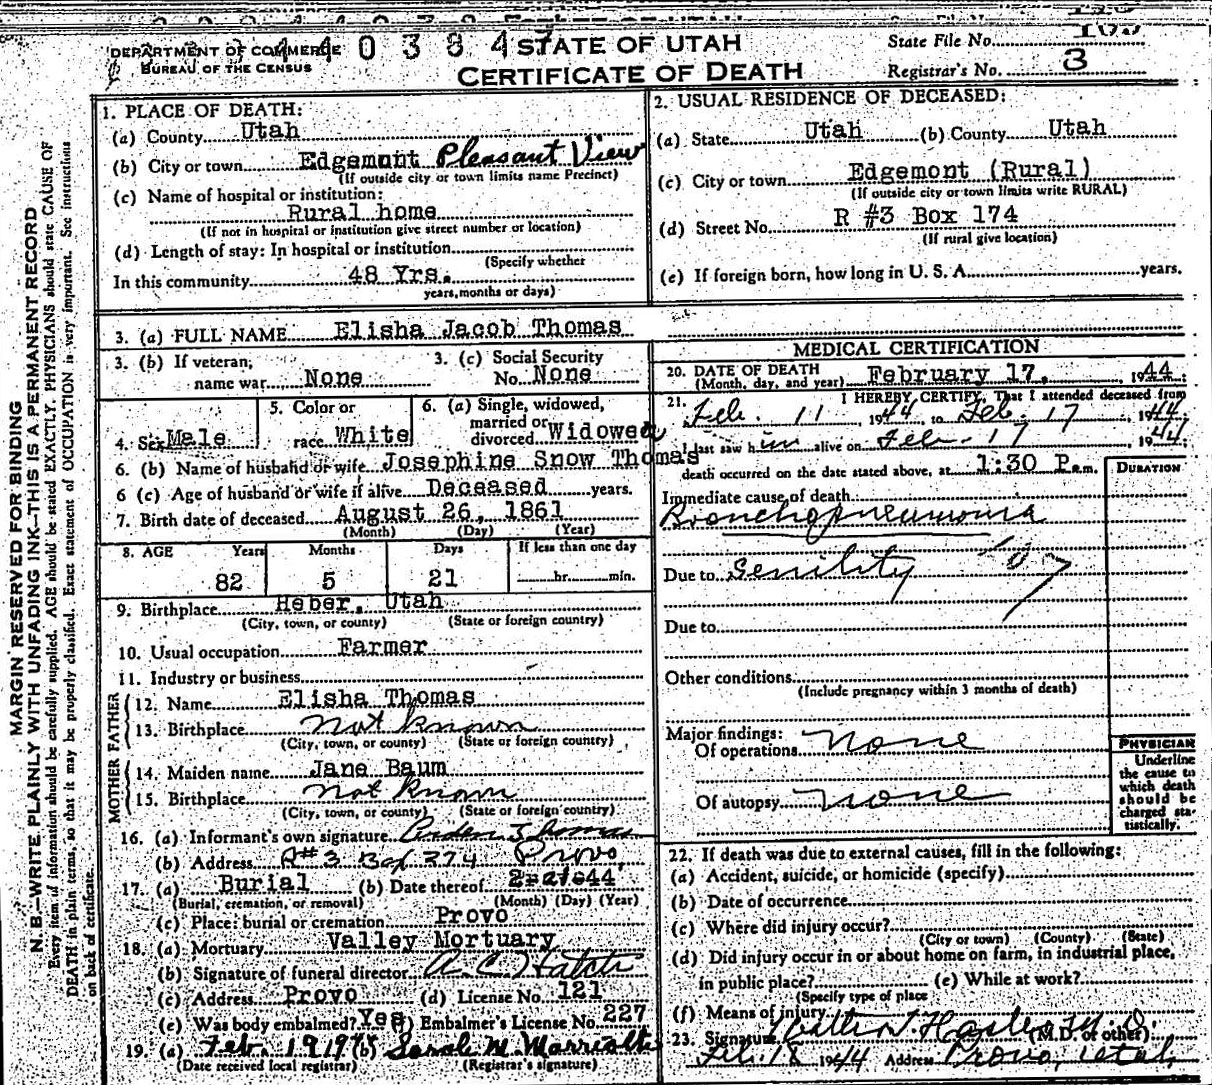 DEPARTMENT OF COMMERCE
BUREAU OF THE CENSUS
STATE OF UTAH
CERTIFICATE OF DEATH
State File No.
Registrar's No. 3
MARGIN RESERVED FOR BINDING
N. B.—WRITE PLAINLY WITH UNFADING INK—THIS IS A PERMANENT RECORD
Every item of information should be carefully supplied. AGE should be stated EXACTLY. PHYSICIANS should state CAUSE OF
DEATH in plain terms, so that it may be properly classified. Exact statement of OCCUPATION is very important. See instructions
on back of certificate.
1. PLACE OF DEATH:
(a) County Utah
(b) City or town Edgemont Pleasant View
(If outside city or town limits name Precinct)
(c) Name of hospital or institution:
Rural home
(If not in hospital or institution give street number or location)
(d) Length of stay: In hospital or institution
(Specify whether
In this community 48 Yrs.
years, months or days)
2. USUAL RESIDENCE OF DECEASED:
(a) State Utah (b) County Utah
(c) City or town Edgemont (Rural)
(If outside city or town limits write RURAL)
(d) Street No. R #3 Box 174
(If rural give location)
(e) If foreign born, how long in U. S. A. years.
3. (a) FULL NAME Elisha Jacob Thomas
3. (b) If veteran, name war None
3. (c) Social Security No. None
4. Sex Male
5. Color or race White
6. (a) Single, widowed, married or divorced Widowed
6. (b) Name of husband or wife Josephine Snow Thomas
6 (c) Age of husband or wife if alive Deceased years.
7. Birth date of deceased August 26, 1861
(Month) (Day) (Year)
8. AGE Years Months Days If less than one day
82 5 21 hr. min.
9. Birthplace Heber, Utah
(City, town, or county) (State or foreign country)
10. Usual occupation Farmer
11. Industry or business
FATHER
12. Name Elisha Thomas
13. Birthplace not known
(City, town, or county) (State or foreign country)
MOTHER
14. Maiden name Jane Baum
15. Birthplace not known
(City, town, or county) (State or foreign country)
16. (a) Informant's own signature Thomas
(b) Address R#3 Box 274 Provo
17. (a) Burial (b) Date thereof 44
(Burial, cremation, or removal) (Month) (Day) (Year)
(c) Place: burial or cremation Provo
18. (a) Mortuary Valley Mortuary
(b) Signature of funeral director A. C. Hatch
(c) Address Provo (d) License No. 121
(e) Was body embalmed? Yes (f) Embalmer's License No. 227
19. (a) Feb. 19 19 (b) Sarah M.
(Date received local registrar) (Registrar's signature)
MEDICAL CERTIFICATION
20. DATE OF DEATH
(Month, day, and year) February 17, 1944
21. I HEREBY CERTIFY, That I attended deceased from
Feb. 11, 1944, to Feb. 17, 1944;
I last saw him alive on Feb. 17 1944
death occurred on the date stated above, at 1:30 P.m.
DURATION
Immediate cause of death
Bronchopneumonia
Due to Senility 107
Due to
Other conditions
(Include pregnancy within 3 months of death)
Major findings:
Of operations none
Of autopsy none
PHYSICIAN
Underline
the cause to
which death
should be
charged sta-
tistically.
22. If death was due to external causes, fill in the following:
(a) Accident, suicide, or homicide (specify)
(b) Date of occurrence
(c) Where did injury occur?
(City or town) (County) (State)
(d) Did injury occur in or about home on farm, in industrial place,
in public place? (e) While at work?
(Specify type of place
(f) Means of injury
23. Signature Walter T. Hasler M. D. (M.D. or other)
Feb. 18 1944 Address Provo, Utah